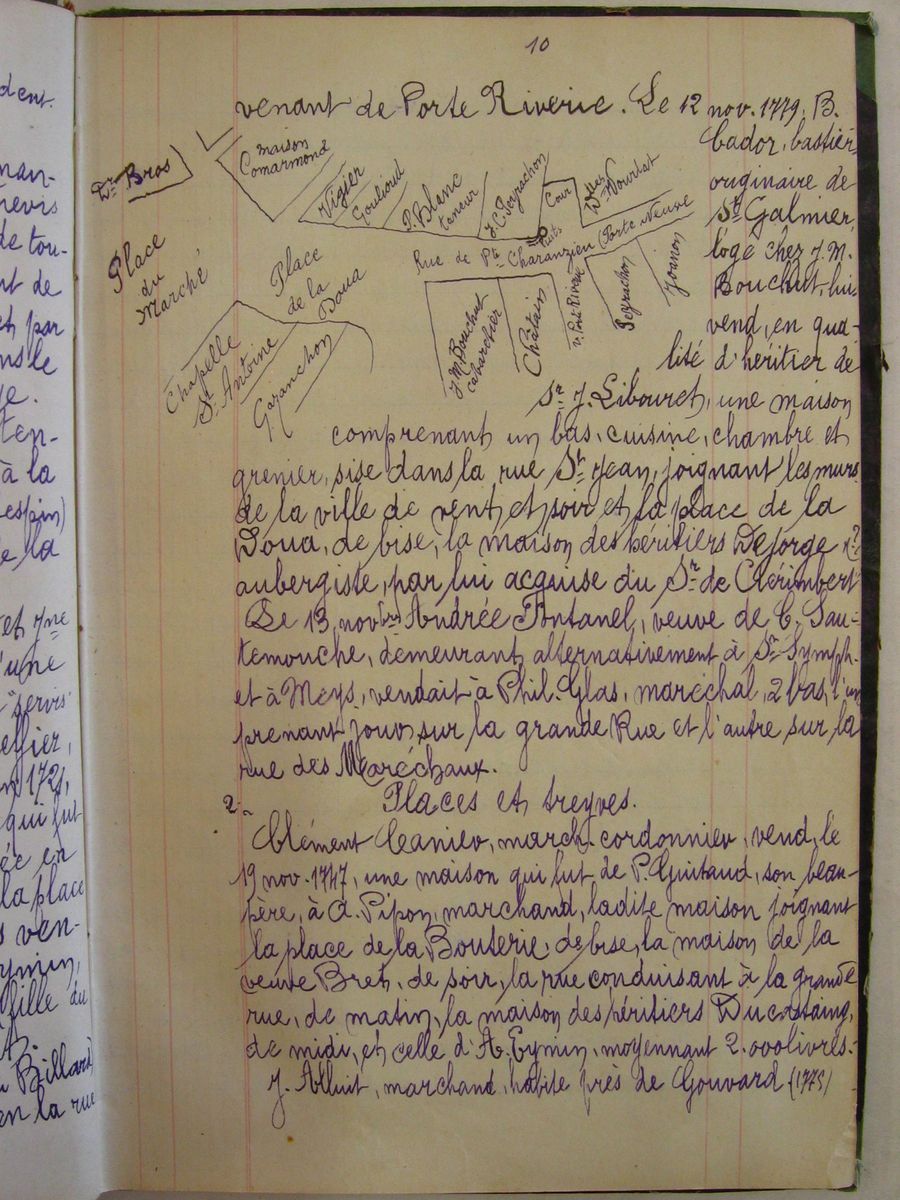 10
venant de Porte Riverie. Le 12 nov. 1779. B.
Cador, bastier
originaire de
St Galmier,
logé chez J. M.
Bouchut, lui
vend, en qua-
lité d'héritier de
Sr J. Libouret, une maison
Dr Bros
Maison
Comarmond
Vigier
Goulioud
P. Blanc
taneur
J. C. Peyrachon
Cour
Puits
Dlles
Dr Mourlat
Place
du
Marché
Place
de la
Doua
Rue de Pte Charanzieu (Porte Neuve
Chapelle
St Antoine
Garanchon
J M Bouchut
cabaretier
Châtain
v. Pont Riverie
Peyrachon
Joanon
comprenant un bas, cuisine, chambre et
grenier, sise dans la rue St Jean, joignant les murs
de la ville de vent et soir et la place de la
Doua, de bise, la maison des héritiers Dejorge
aubergiste, par lui acquise du Sr de Clérimbert
Le 13 novbre Andrée Fontanel, veuve de C. Sau-
temouche, demeurant alternativement à St Symph.
et à Meys, vendait à Phil. Glas, maréchal, 2 bas, l'un
prenant jour sur la grande Rue et l'autre sur la
rue des Maréchaux.
2.- Places et treyves.
Clément Canier, march. cordonnier, vend, le
19 nov. 1747, une maison qui fut de P. Guitaud, son beau-
père, à A. Pipon, marchand, ladite maison joignant
la place de la Bouterie, de bise, la maison de la
veuve Bret, de soir, la rue conduisant à la grande
rue, de matin, la maison des héritiers Ducastaing,
de midi, et celle d'A. Eymin, moyennant 2.000 livres.-
J. Alluit, marchand, habite près de Gouvard (1775)
dent.
man-
nevis
de tou-
nt de
et par
ns le
ge.
ten-
à la
espin)
de la
et Jne
'une
servis
ellier,
n 1721,
qui fut
ée en
la place
s ven-
ymin,
fille du
Billard)
en la rue